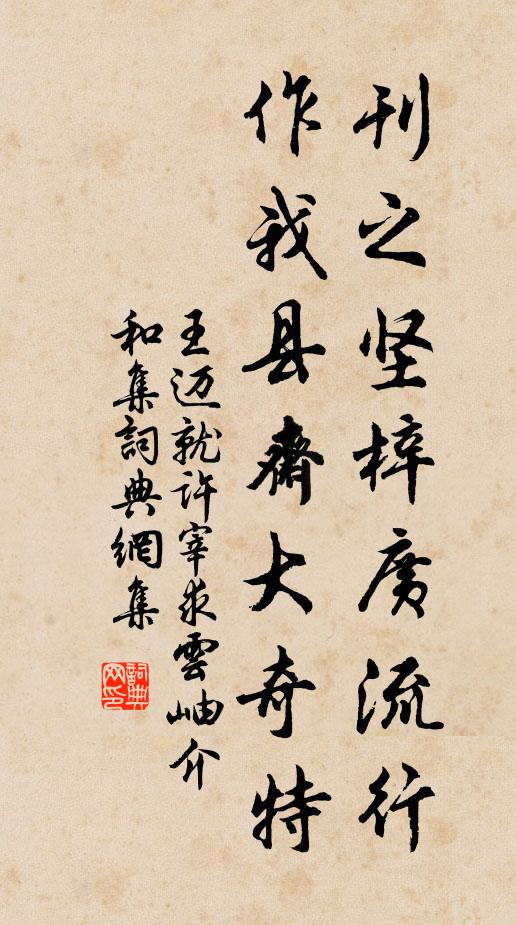 刊之坚梓廣流行
作我县齋大奇特
王迈就许宰求雲岫介
和集詞典網集
詞典网印